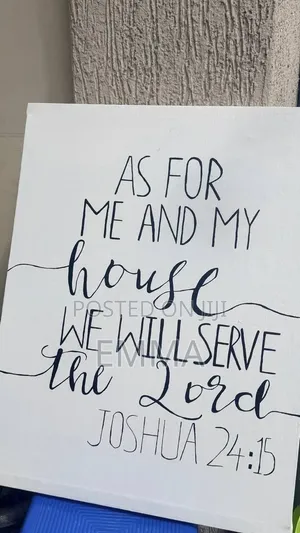 AS FOR
ME AND MY
house
POSTED ON JIJI
WE WILL SERVE
EMMA
the Lord
JOSHUA 24:15